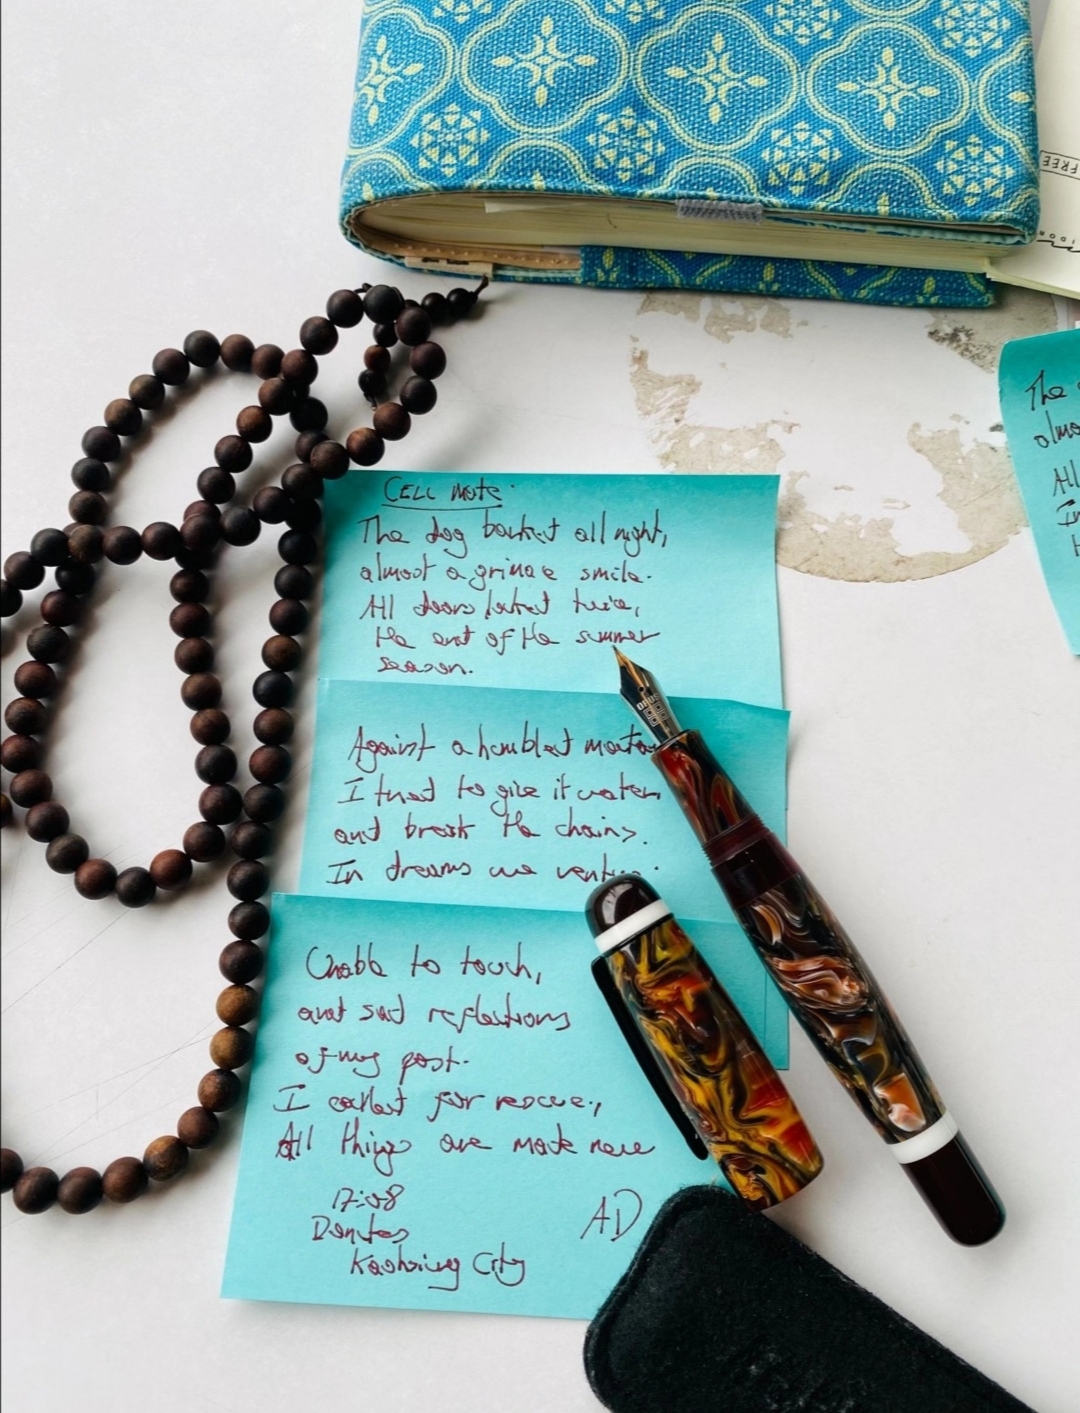 CELL note.
The dog barked all night,
almost a grimace smile.
All doors locked twice,
the end of the summer
season.
Against a humbled
I tried to give it water,
and break the chains.
In dreams we
Unable to touch,
and sad reflections
of my past.
I called for rescue,
All things are made new
17:58
Dentes
Kaohsiung City
AD
OPUS
88
The
almo
All
In
H
FREE